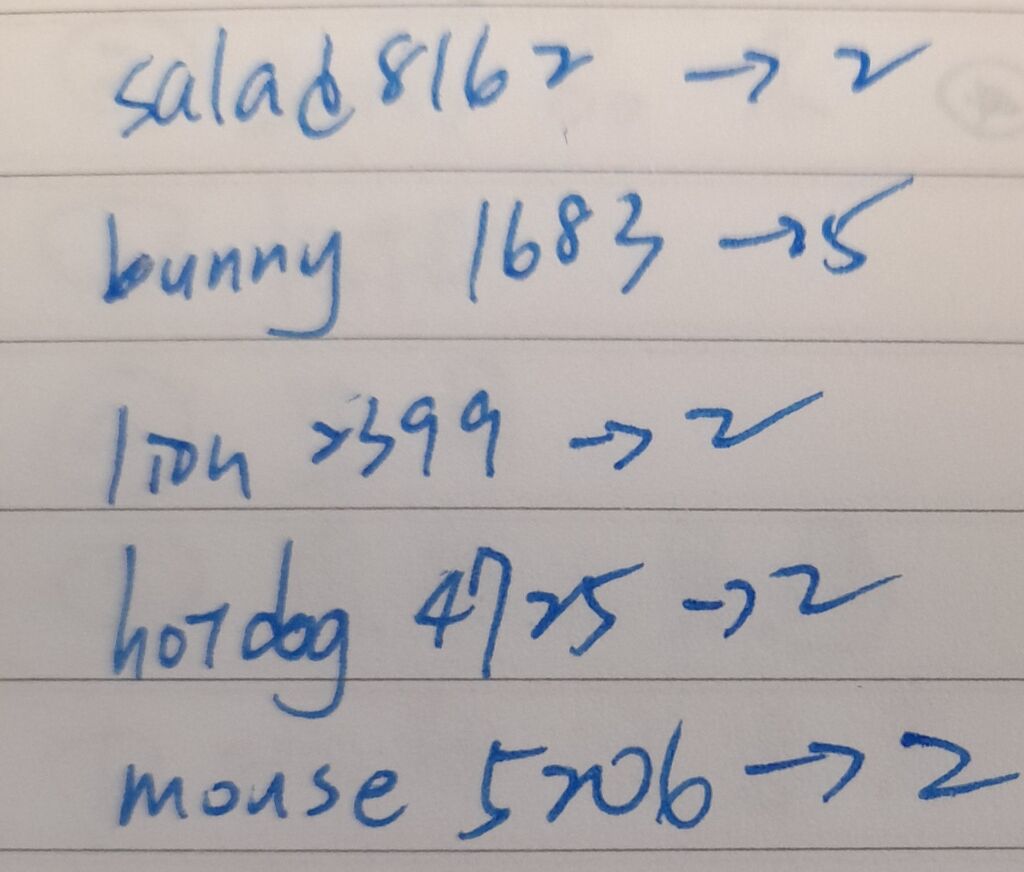 salad 8162 → 2
bunny 1683 → 5
lion 2399 → 2
hotdog 4725 → 2
mouse 5206 → 2